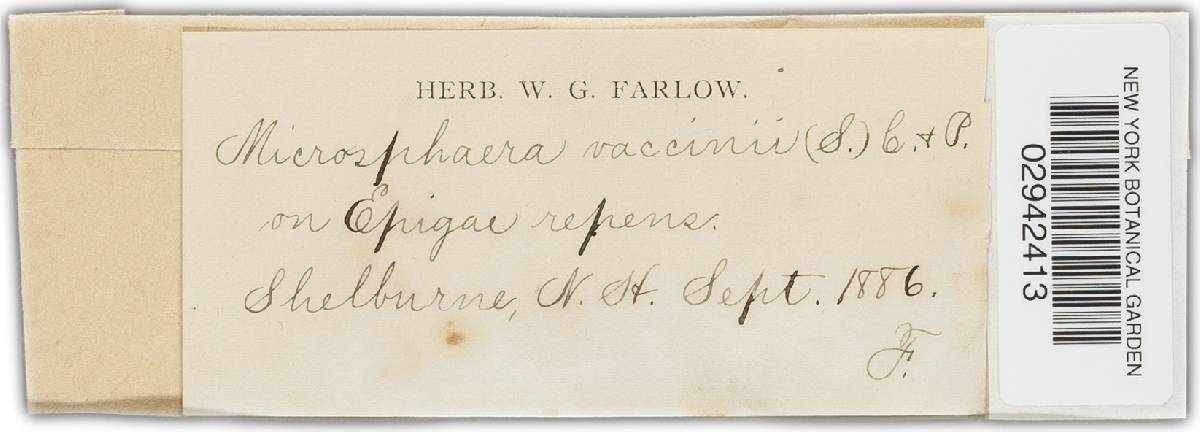 HERB. W. G. FARLOW.
Microsphaera vaccinii (S.) C. & P.
on Epigae repens.
Shelburne, N. H. Sept. 1886.
F.
NEW YORK BOTANICAL GARDEN
02942413